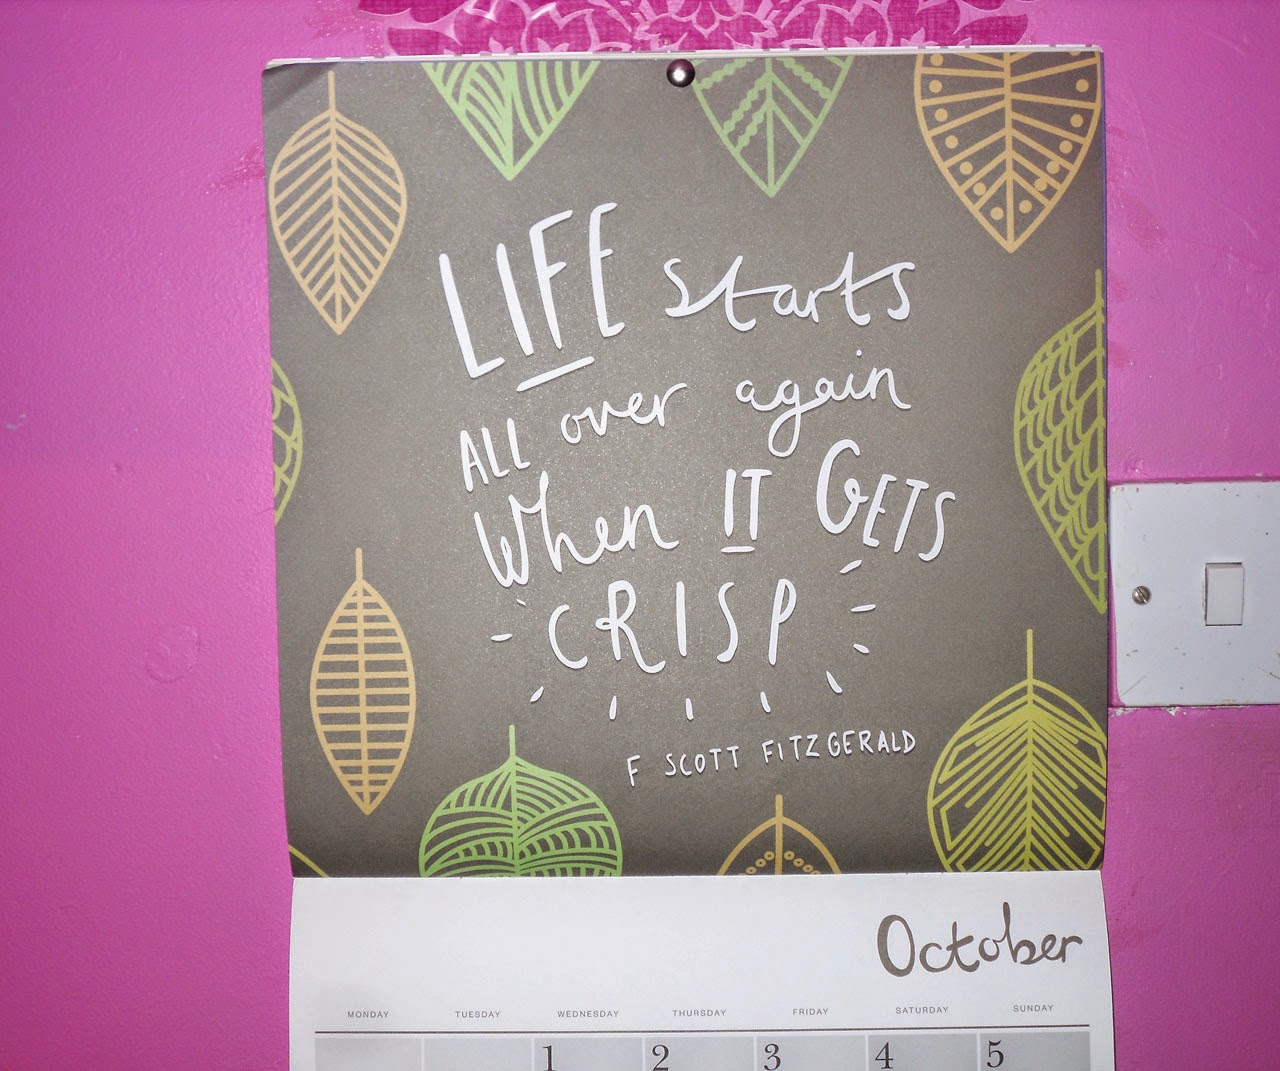 LIFE starts
ALL over again
When IT GETS
CRISP
F SCOTT FITZGERALD
October
MONDAY TUESDAY WEDNESDAY THURSDAY FRIDAY SATURDAY SUNDAY
1 2 3 4 5